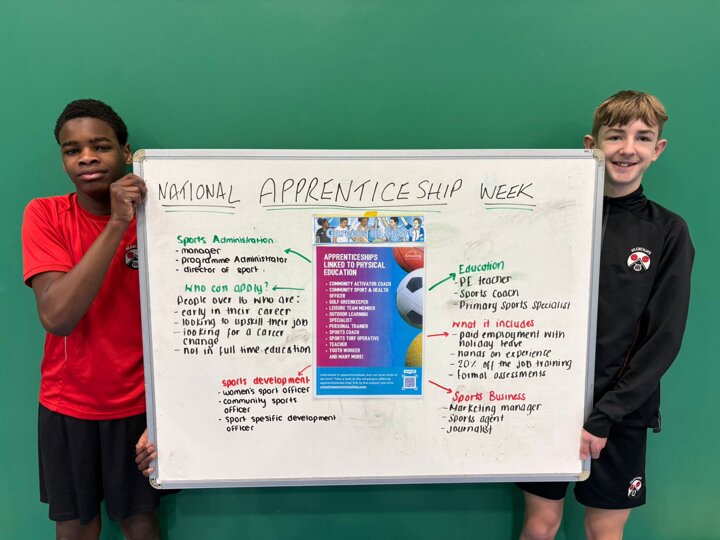 NATIONAL APPRENTICESHIP WEEK
Sports Administration
- manager
- programme Administrator
- director of sport.
Who can apply?
People over 16 who are:
- early in their career
- looking to upskill their job
- looking for a career
change
- not in full time education
sports development
- women's sport officer
- community sports
officer
- sport spesific development
officer
Careers in Sport
APPRENTICESHIPS
LINKED TO PHYSICAL
EDUCATION
• COMMUNITY ACTIVATOR COACH
• COMMUNITY SPORT & HEALTH
OFFICER
• GOLF GREENKEEPER
• LEISURE TEAM MEMBER
• OUTDOOR LEARNING
SPECIALIST
• PERSONAL TRAINER
• SPORTS COACH
• SPORTS TURF OPERATIVE
• TEACHER
• YOUTH WORKER
AND MANY MORE!
Education
- PE teacher
- Sports coach
- Primary sports specialist
What it includes
- paid employment with
holiday leave
- hands on experience
- 20% off the job training
- formal assessments
Sports Business
- Marketing manager
- Sports agent
- Journalist